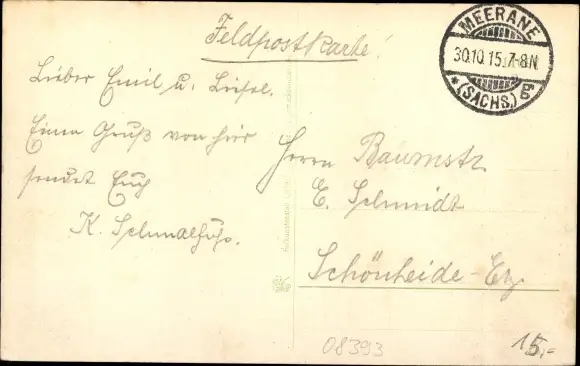 Feldpostkarte!
MEERANE
30.10.15.7-8N
*(SACHS.) 6g
Lieber Emil u. Liesel.
Einen Gruß von hier
sendet Euch
K. Schmalfuß.
Herrn Baumstr.
E. Schmidt
Schönheide-Erz
08393
15,-